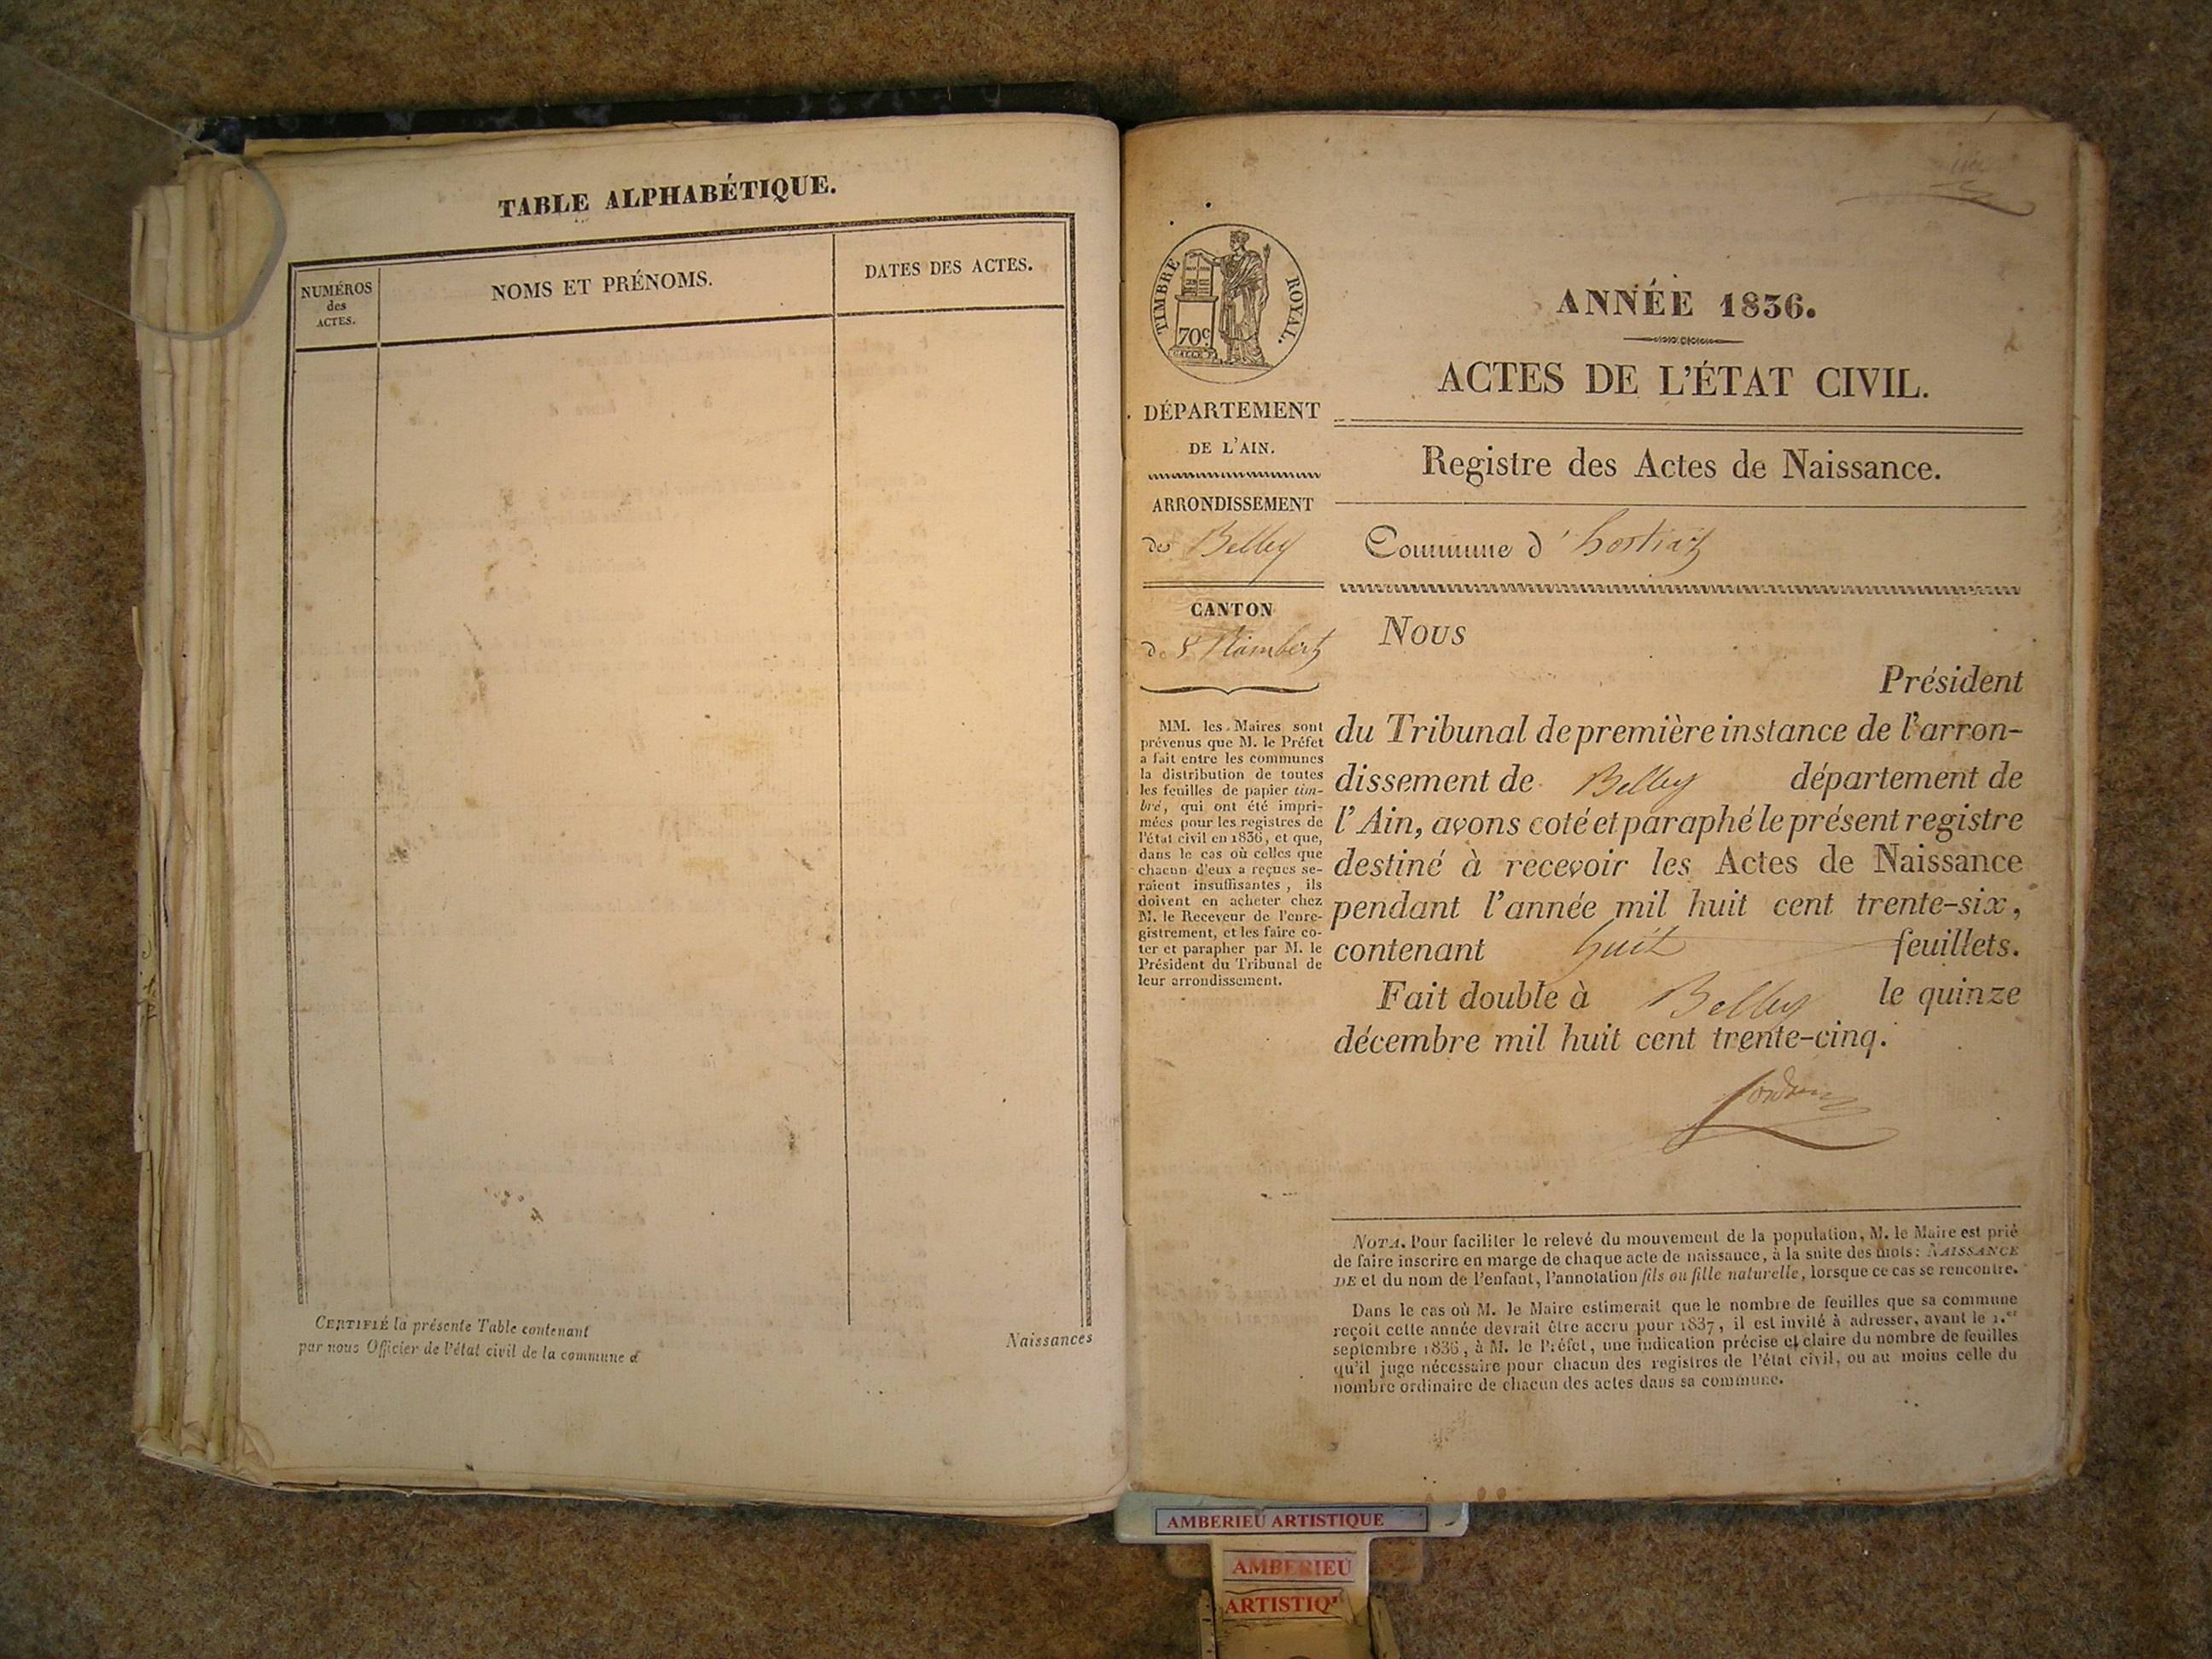 TABLE ALPHABÉTIQUE.
NUMÉROS
des
ACTES.
NOMS ET PRÉNOMS.
DATES DES ACTES.
CERTIFIÉ la présente Table contenant
Naissances
par nous Officier de l'état civil de la commune d
TIMBRE ROYAL.
70c
DÉPARTEMENT
DE L'AIN.
ARRONDISSEMENT
de Belley
CANTON
de St Rambert
MM. les Maires sont
prévenus que M. le Préfet
a fait entre les communes
la distribution de toutes
les feuilles de papier tim-
bré, qui ont été impri-
mées pour les registres de
l'état civil en 1836, et que,
dans le cas où celles que
chacun d'eux a reçues se-
raient insuffisantes, ils
doivent en acheter chez
M. le Receveur de l'enre-
gistrement, et les faire co-
ter et parapher par M. le
Président du Tribunal de
leur arrondissement.
ANNÉE 1836.
ACTES DE L'ÉTAT CIVIL.
Registre des Actes de Naissance.
Commune d'hostiaz
Nous
Président
du Tribunal de première instance de l'arron-
dissement de Belley département de
l'Ain, avons coté et paraphé le présent registre
destiné à recevoir les Actes de Naissance
pendant l'année mil huit cent trente-six,
contenant huit feuillets.
Fait double à Belley le quinze
décembre mil huit cent trente-cinq.
NOTA. Pour faciliter le relevé du mouvement de la population, M. le Maire est prié
de faire inscrire en marge de chaque acte de naissance, à la suite des mots: NAISSANCE
DE et du nom de l'enfant, l'annotation fils ou fille naturelle, lorsque ce cas se rencontre.
Dans le cas où M. le Maire estimerait que le nombre de feuilles que sa commune
reçoit cette année devrait être accru pour 1837, il est invité à adresser, avant le 1.er
septembre 1836, à M. le Préfet, une indication précise et claire du nombre de feuilles
qu'il juge nécessaire pour chacun des registres de l'état civil, ou au moins celle du
nombre ordinaire de chacun des actes dans sa commune.
AMBERIEU ARTISTIQUE
AMBERIEU
ARTISTIQ